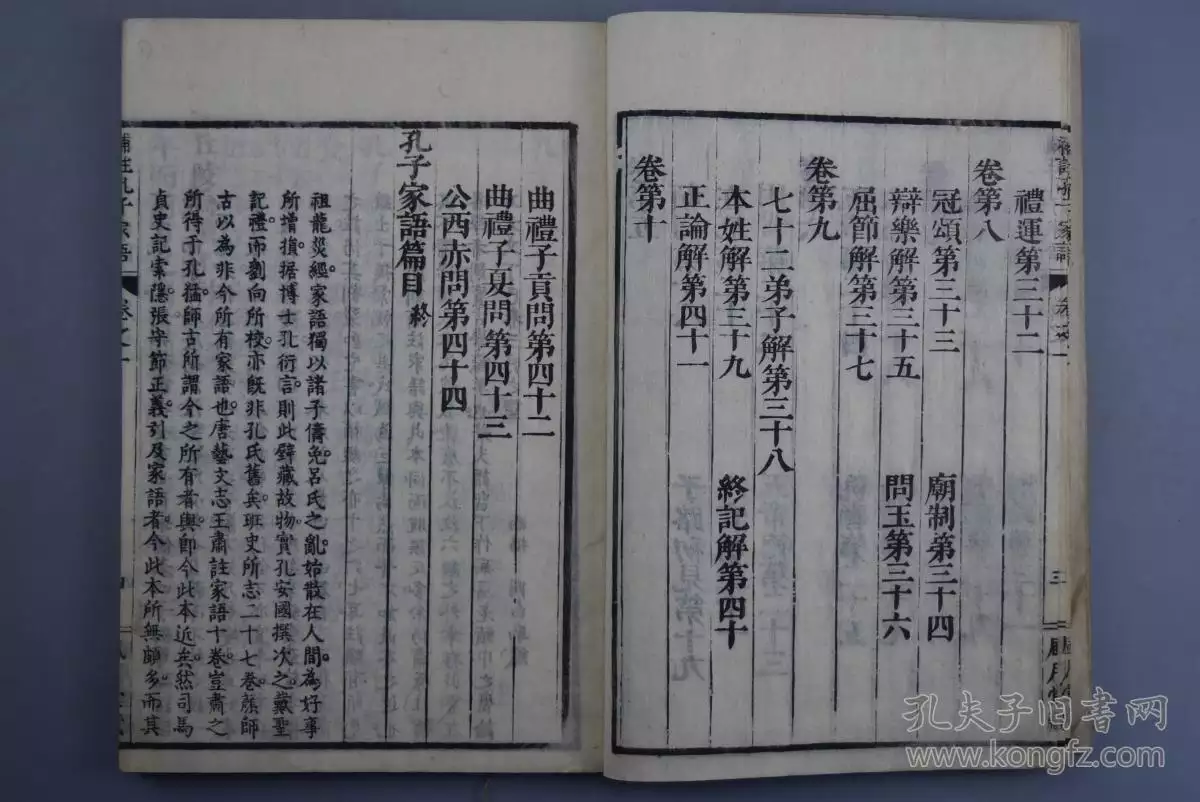 禮運第三十二
卷第八
冠頌第三十三　廟制第三十四
辯樂解第三十五　問玉第三十六
屈節解第三十七
卷第九
七十二弟子解第三十八
本姓解第三十九　終記解第四十
正論解第四十一
卷第十
曲禮子貢問第四十二
曲禮子夏問第四十三
公西赤問第四十四
孔子家語篇目終
祖龍災經。家語獨以諸子儔免。呂氏之亂。始散在人間。為好事
所增損。据博士孔衍言。則此壁藏故物。實孔安國撰次之。戴聖
記禮。而劉向所校。亦旣非孔氏舊矣。班史所志二十七卷。顏師
古以為非今所有家語也。唐藝文志王肅註家語十卷。豈肅之
所得于孔猛。師古所謂今之所有者與。卽今此本近矣。然司馬
貞史記索隱。張守節正義。引及家語者。今此本所無頗多。而其
補註孔子家語　卷之一
三
孔夫子旧书网
www.kongfz.com